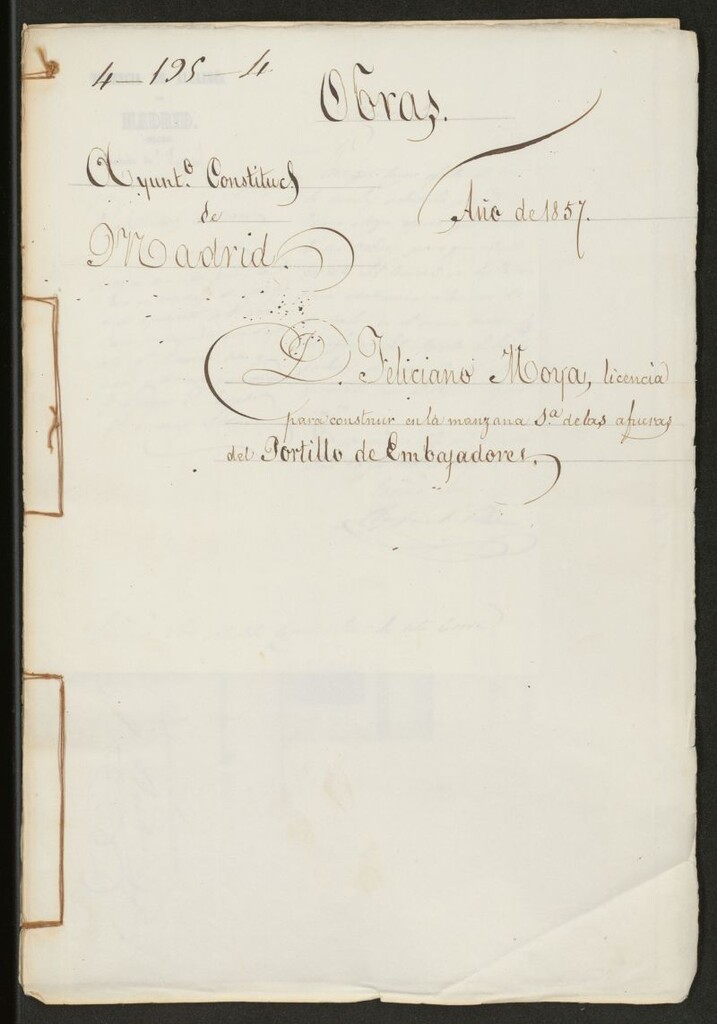 4-195-4
Obras.
Ayunt.º Constituc.l
de
Madrid.
Año de 1857.
D. Feliciano Moya, licencia
para construir en la manzana 5.a de las afueras
del Portillo de Embajadores.